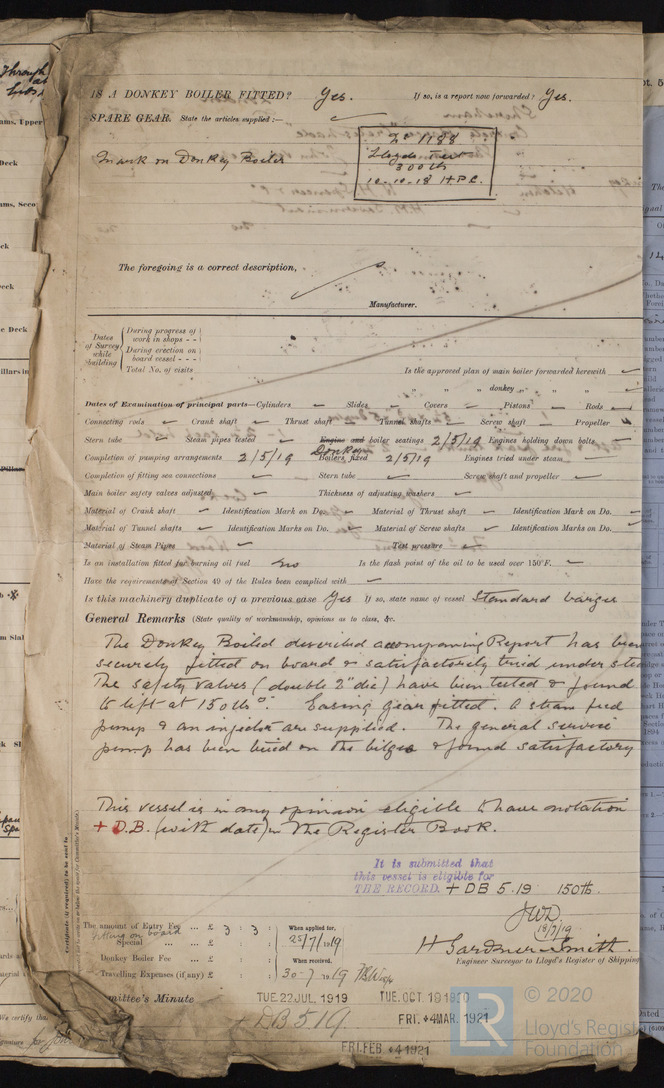 IS A DONKEY BOILER FITTED? Yes. If so, is a report now forwarded? Yes.
SPARE GEAR. State the articles supplied:—
Mark on Donkey Boiler
No 1188
Lloyds Test
300 lb
10-10-18 H.P.C.
The foregoing is a correct description,
Manufacturer.
Dates of Survey while building
During progress of work in shops - -
During erection on board vessel - - -
Total No. of visits
Is the approved plan of main boiler forwarded herewith
" " " donkey " " "
Dates of Examination of principal parts—Cylinders Slides Covers Pistons Rods
Connecting rods Crank shaft Thrust shaft Tunnel shafts Screw shaft Propeller
Stern tube Steam pipes tested Engine and boiler seatings 2/5/19 Engines holding down bolts
Donkey
Completion of pumping arrangements 2/5/19 Boilers fixed 2/5/19 Engines tried under steam
Completion of fitting sea connections Stern tube Screw shaft and propeller
Main boiler safety valves adjusted Thickness of adjusting washers
Material of Crank shaft Identification Mark on Do. Material of Thrust shaft Identification Mark on Do.
Material of Tunnel shafts Identification Marks on Do. Material of Screw shafts Identification Marks on Do.
Material of Steam Pipes Test pressure
Is an installation fitted for burning oil fuel no Is the flash point of the oil to be used over 150°F.
Have the requirements of Section 49 of the Rules been complied with
Is this machinery duplicate of a previous case Yes If so, state name of vessel Standard barges
General Remarks (State quality of workmanship, opinions as to class, &c.
The Donkey Boiled described accompaning Report has been
securely fitted on board & satisfactorily tried under steam
The safety valves (double 2" dia) have been tested & found
to lift at 150 lbs □". Easing gear fitted. A steam feed
pump & an injector are supplied. The general service
pump has been tried on the bilges & found satisfactory
This vessel is in my opinion eligible to have notation
+ D.B. (with date) in The Register Book.
It is submitted that
this vessel is eligible for
THE RECORD. + DB 5.19 150 lb.
JWD
18/7/19
H Gardner-Smith.
Engineer Surveyor to Lloyd's Register of Shipping
Certificate (if required) to be sent to
The amount of Entry Fee ... £ 3 : 3 : When applied for,
fitting on board
Special ... ... £ : : 25/7/1919
Donkey Boiler Fee ... £ : : When received,
Travelling Expenses (if any) £ : : 30-7-1919
Committee's Minute TUE. 22 JUL. 1919 TUE. OCT. 19 1920
+ DB 5 19. FRI. 4 MAR. 1921
FRI. FEB 4 1921
© 2020
Lloyd's Register
Foundation